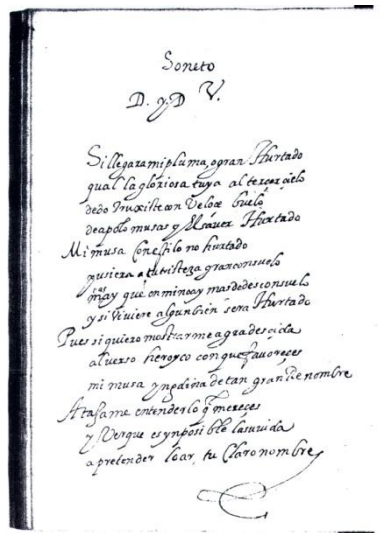 Soneto
D. y D V.
Si llegara mi pluma, o gran Hurtado
qual la gloriosa tuya al tercer çielo
dedo truxiste con veloz buelo
de apolo musas y el saver Hurtado
Mi musa con estilo no hurtado
pusiera a tu tristeza gran consuelo
mas ay que en mi no ay mas de desconsuelo
y si viviere algun bien sera Hurtado
Pues si quiero mostrarme agradesçida
al verso heroyco con que favoreçes
mi musa yndina de tan gran Renombre
Atajame entender lo q̃ mereçes
y Ver que es ynposible la suvida
a pretender loar, tu Claro nombre